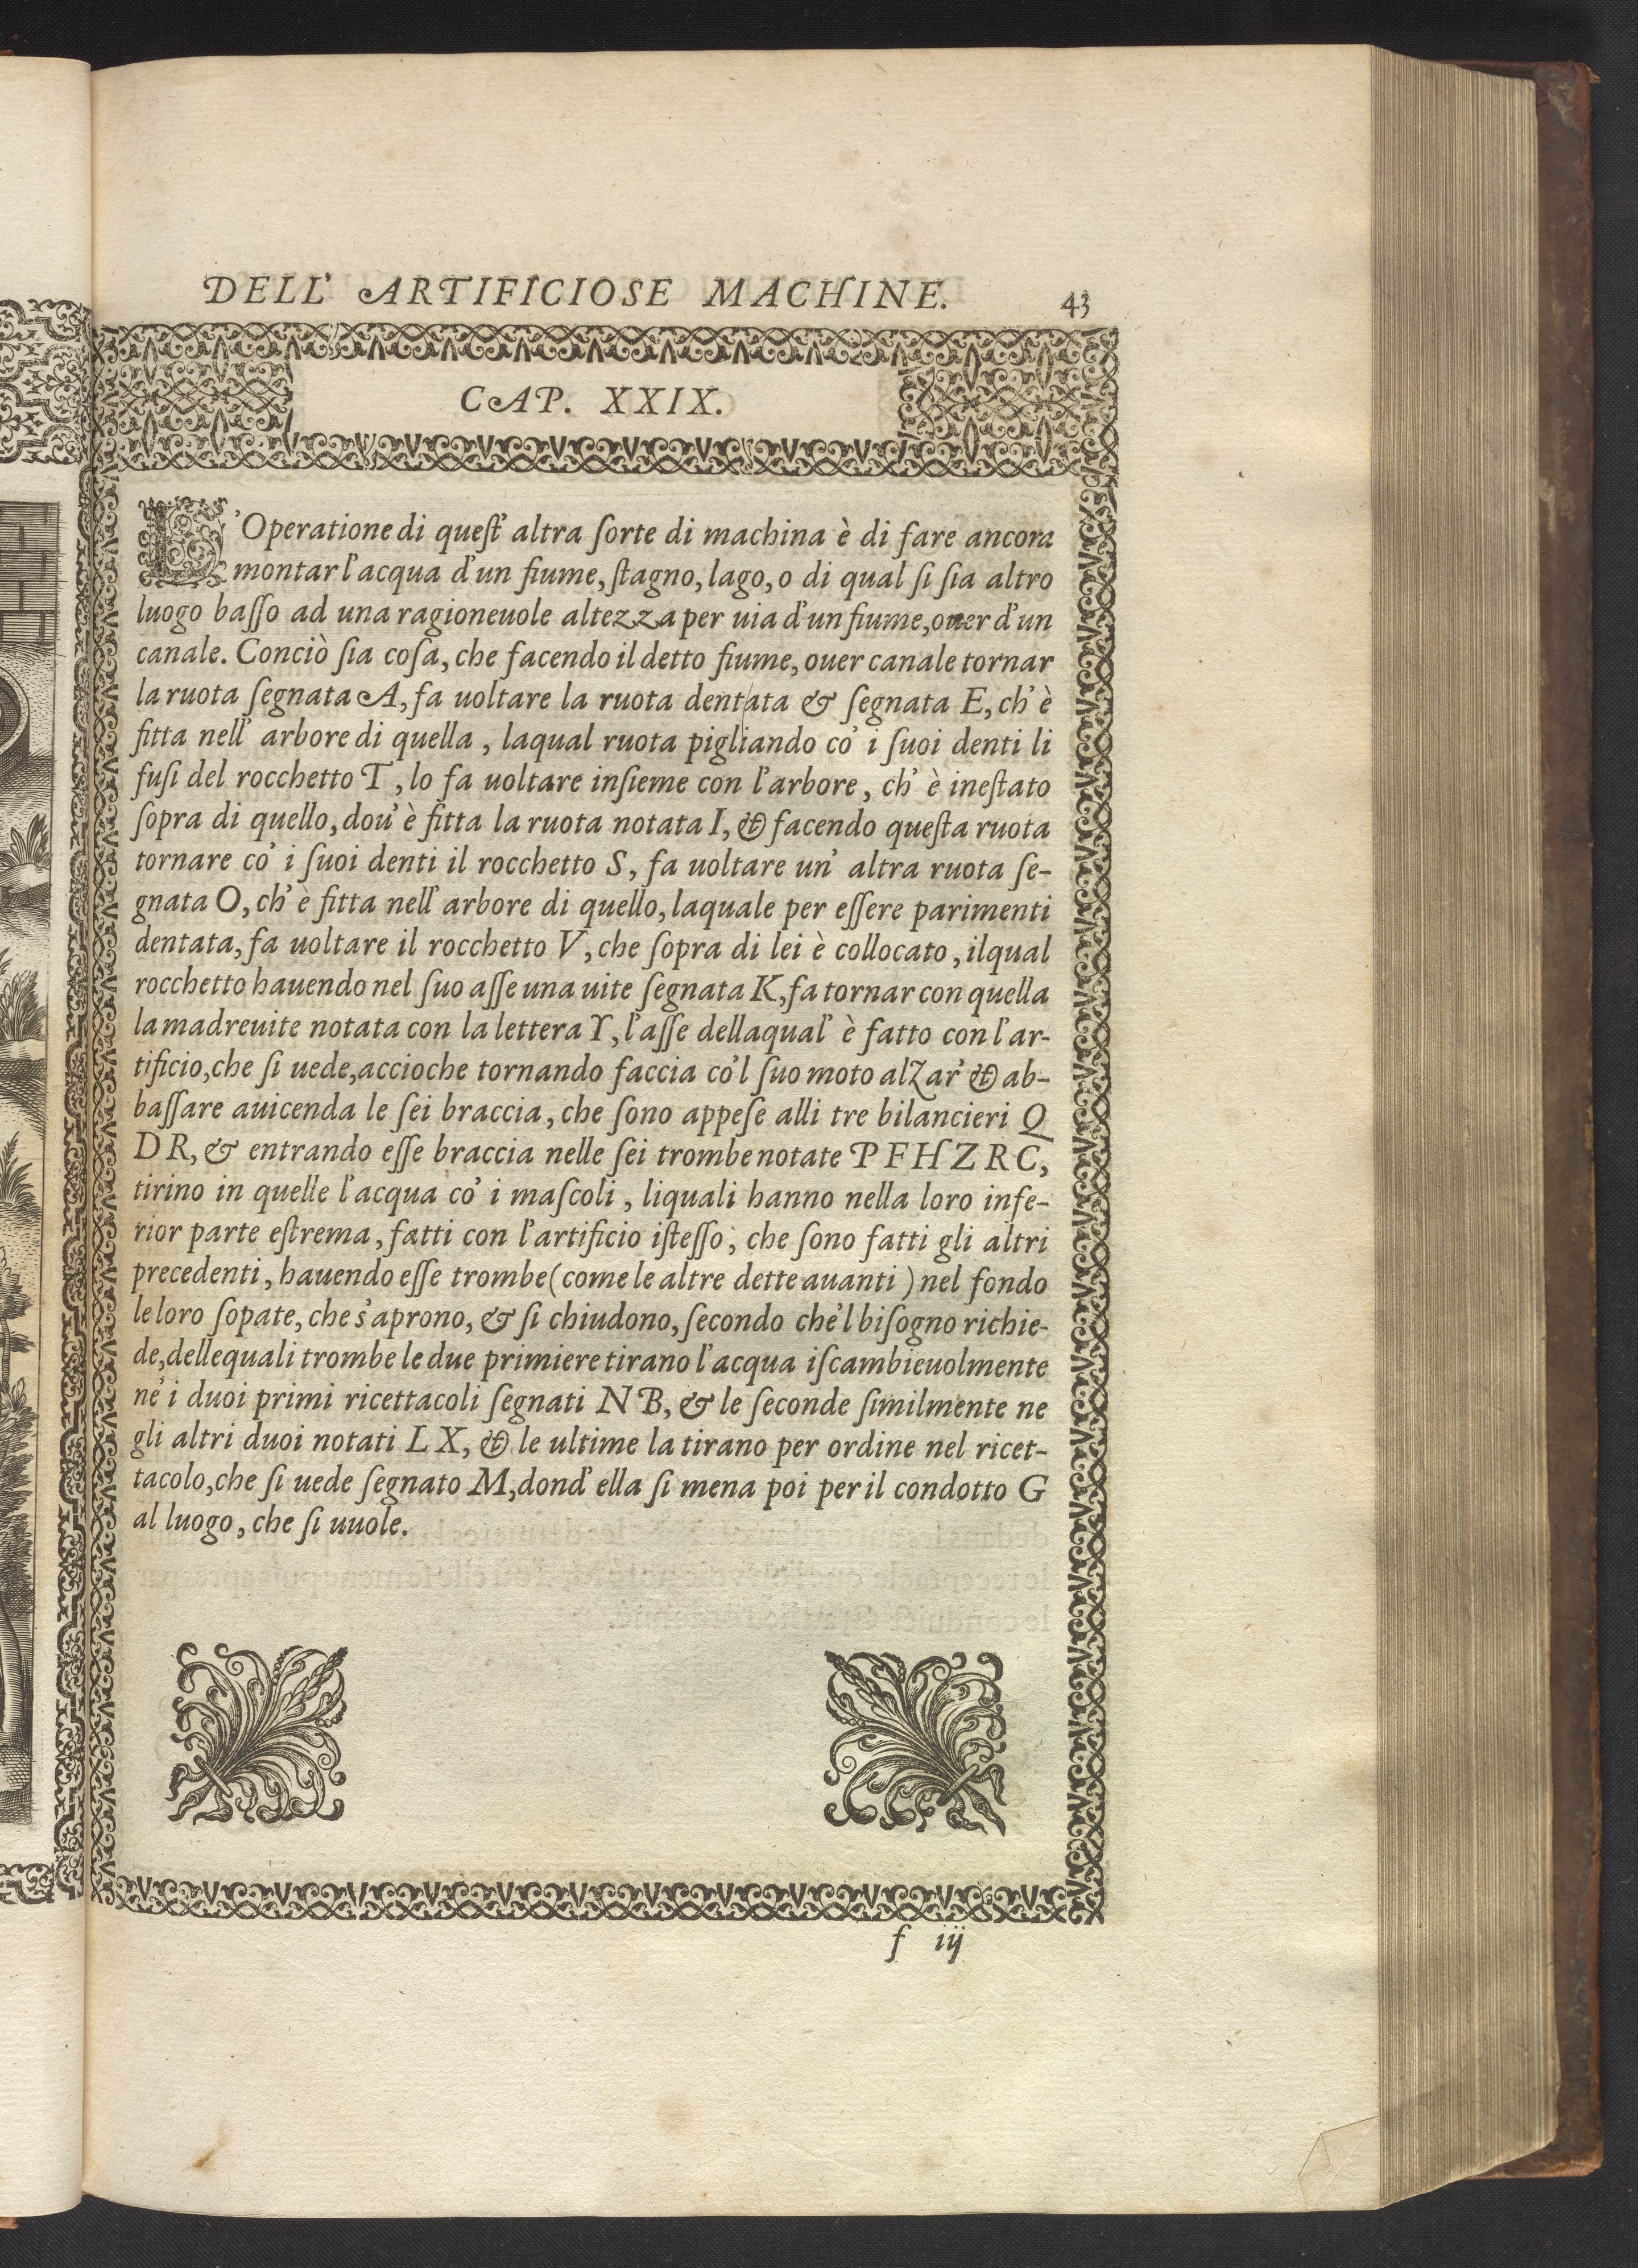 DELL' ARTIFICIOSE MACHINE. 43
CAP. XXIX.
L'Operatione di quest' altra sorte di machina è di fare ancora
montar l'acqua d'un fiume, stagno, lago, o di qual si sia altro
luogo basso ad una ragioneuole altezza per uia d'un fiume, ouer d'un
canale. Conciò sia cosa, che facendo il detto fiume, ouer canale tornar
la ruota segnata A, fa uoltare la ruota dentata & segnata E, ch' è
fitta nell' arbore di quella, laqual ruota pigliando co' i suoi denti li
fusi del rocchetto T, lo fa uoltare insieme con l'arbore, ch' è inestato
sopra di quello, dou' è fitta la ruota notata I, & facendo questa ruota
tornare co' i suoi denti il rocchetto S, fa uoltare un' altra ruota se-
gnata O, ch' è fitta nell' arbore di quello, laquale per essere parimenti
dentata, fa uoltare il rocchetto V, che sopra di lei è collocato, ilqual
rocchetto hauendo nel suo asse una uite segnata K, fa tornar con quella
la madreuite notata con la lettera Y, l'asse dellaqual' è fatto con l'ar-
tificio, che si uede, accioche tornando faccia co'l suo moto alzar' & ab-
bassare auicenda le sei braccia, che sono appese alli tre bilancieri Q
D R, & entrando esse braccia nelle sei trombe notate P F H Z R C,
tirino in quelle l'acqua co' i mascoli, liquali hanno nella loro infe-
rior parte estrema, fatti con l'artificio istesso, che sono fatti gli altri
precedenti, hauendo esse trombe (come le altre dette auanti) nel fondo
le loro sopate, che s'aprono, & si chiudono, secondo che'l bisogno richie-
de, dellequali trombe le due primiere tirano l'acqua iscambieuolmente
ne' i duoi primi ricettacoli segnati N B, & le seconde similmente ne
gli altri duoi notati L X, & le ultime la tirano per ordine nel ricet-
tacolo, che si uede segnato M, dond' ella si mena poi per il condotto G
al luogo, che si uuole.
f iij